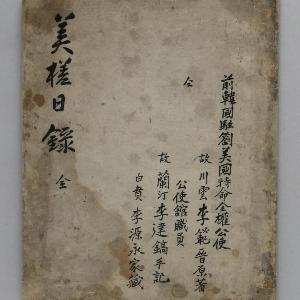 前韓國駐箚美國特命全權公使
故 川雲 李範晉原著
仝 公使館職員
故 蘭汀 李建鎬手記
白賁 李源永家藏
美槎日錄 全